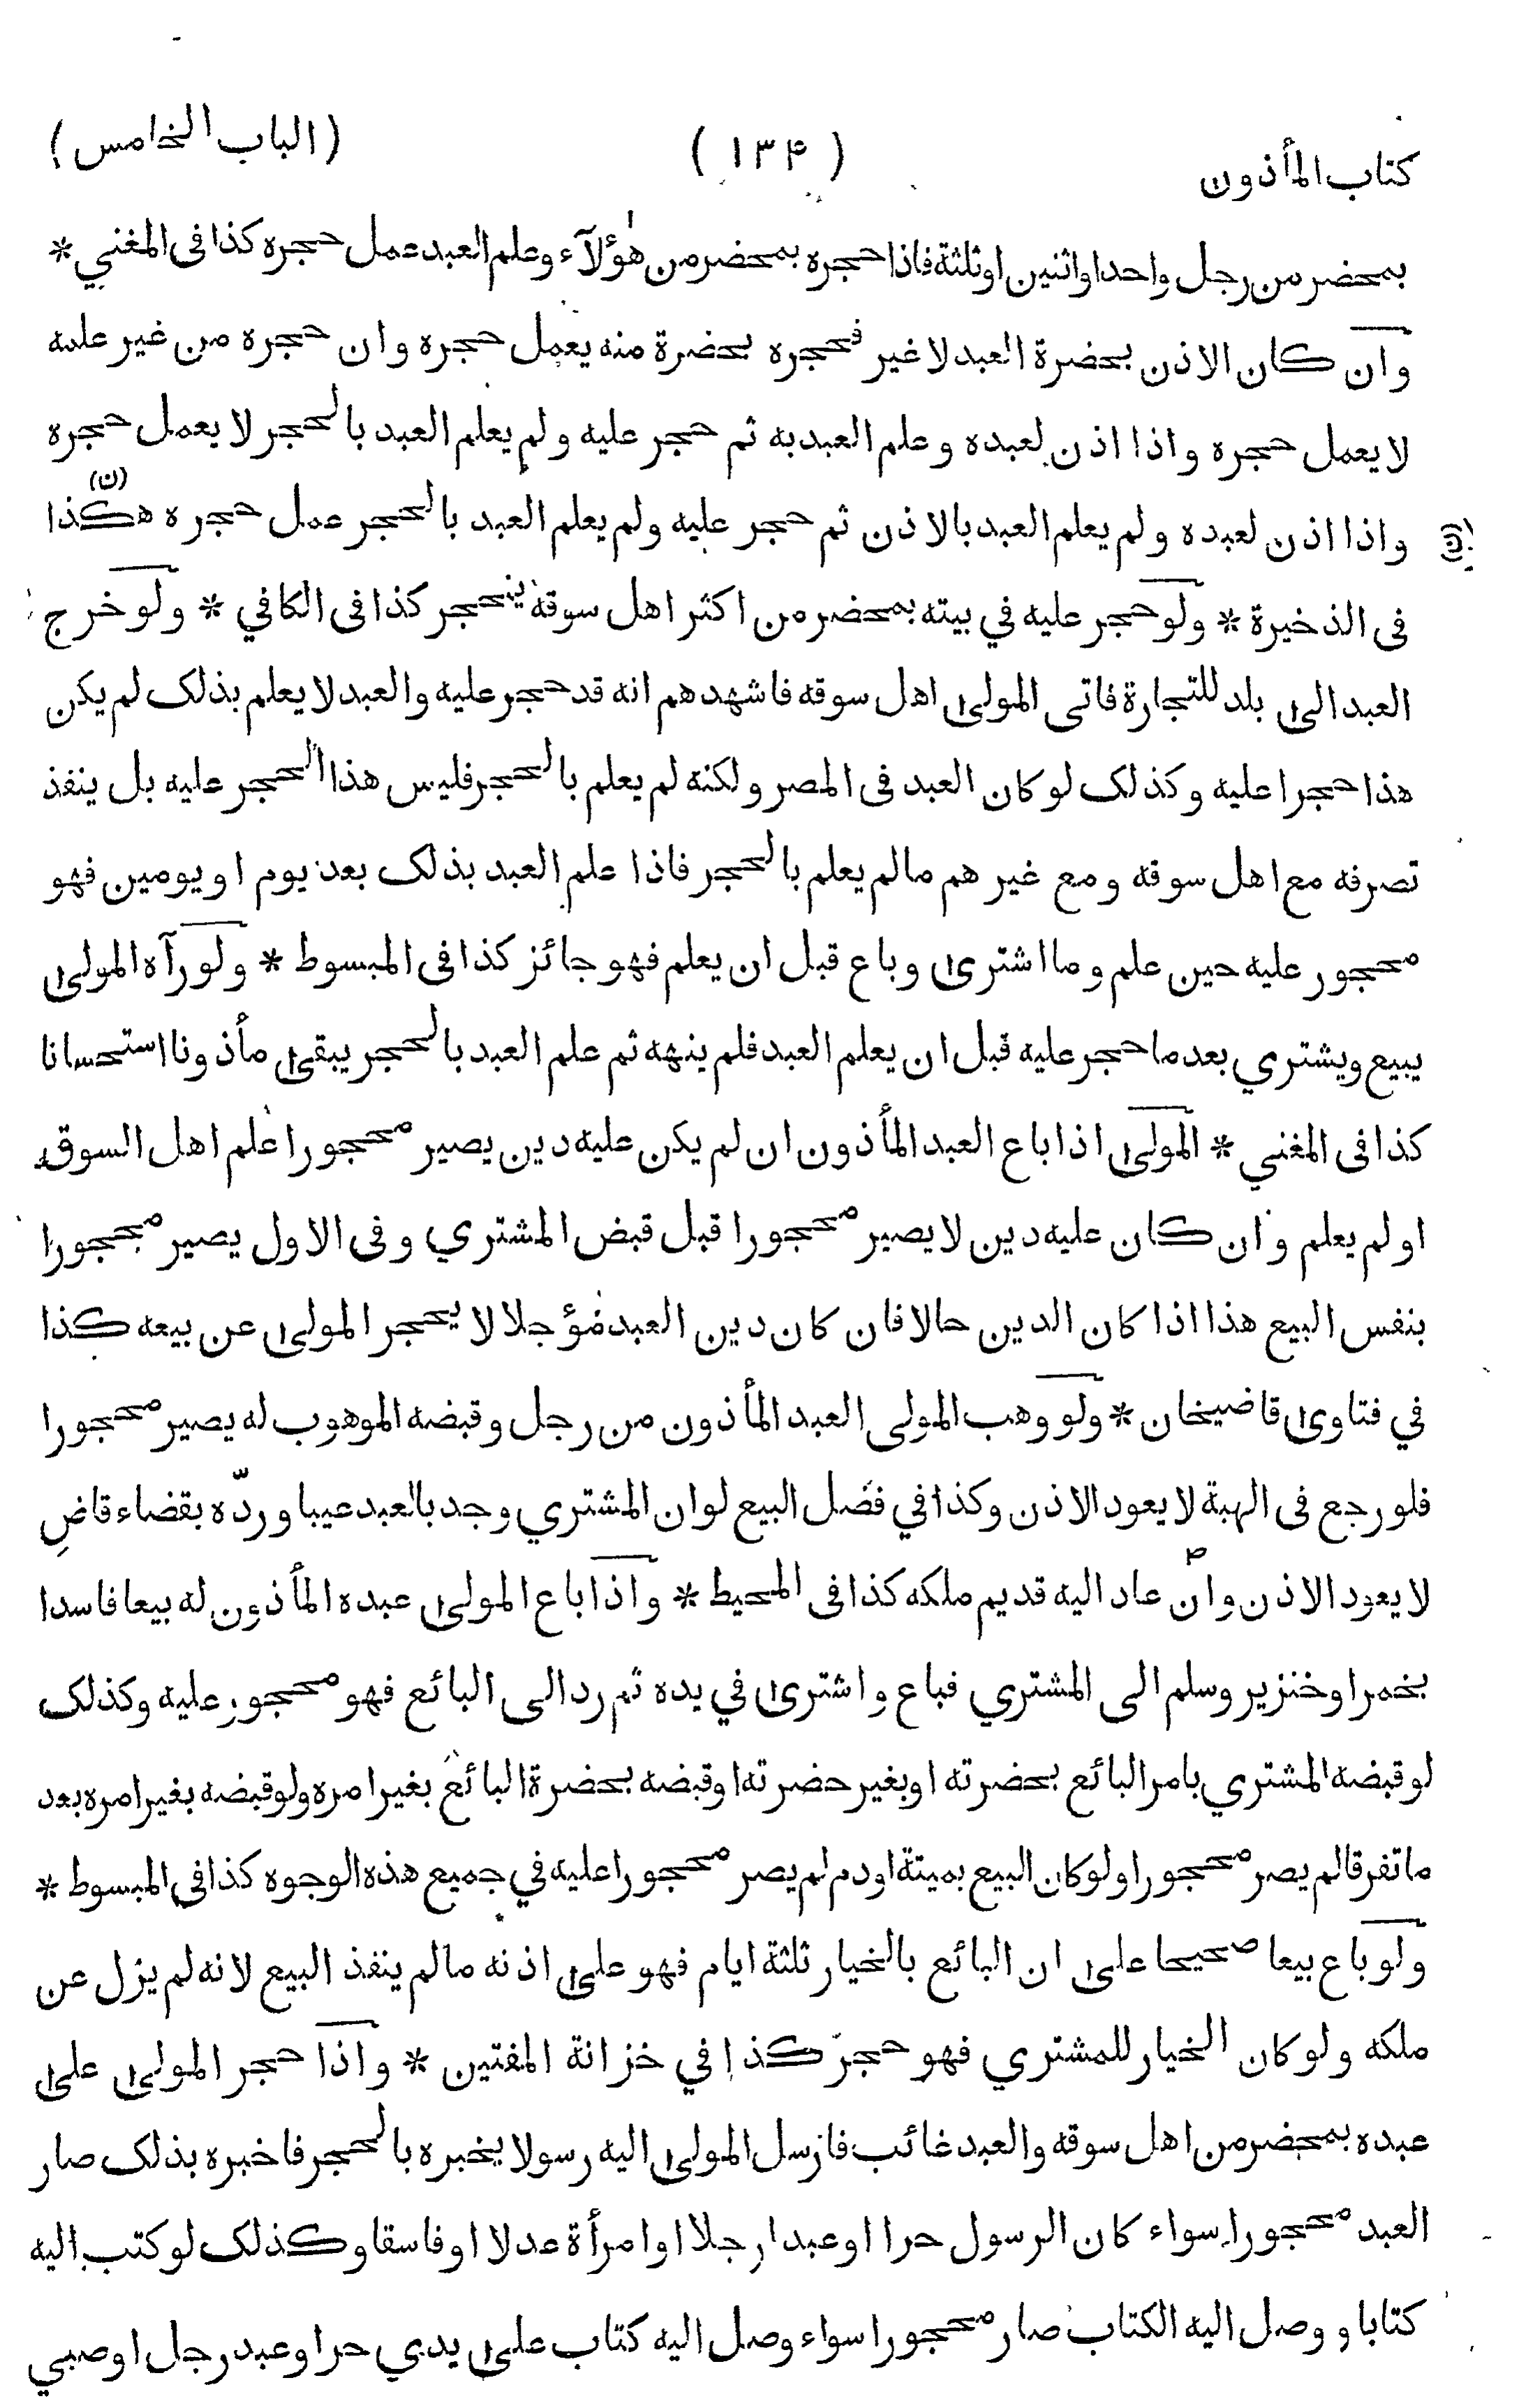 كتاب المأذون (۱۳۴) (الباب الخامس)
بمحضر من رجل واحد او اثنين او ثلثة فاذا حجره بمحضر من هٰؤلآء وعلم العبد عمل حجره كذا فى المغني *
وان كان الاذن بحضرة العبد لا غير فحجره بحضرة منه يعمل حجره وان حجره من غير علمه
لا يعمل حجره واذا اذن لعبده وعلم العبد به ثم حجر عليه ولم يعلم العبد بالحجر لا يعمل حجره
واذا اذن لعبده ولم يعلم العبد بالاذن ثم حجر عليه ولم يعلم العبد بالحجر عمل حجره هكذا (ن)
فى الذخيرة * ولو حجر عليه في بيته بمحضر من اكثر اهل سوقه ينحجر كذا فى الكافي * ولو خرج
العبد الىٰ بلد للتجارة فاتى المولىٰ اهل سوقه فاشهدهم انه قد حجر عليه والعبد لا يعلم بذلک لم يكن
هذا حجرا عليه وكذلک لو كان العبد فى المصر ولكنه لم يعلم بالحجر فليس هذا الحجر عليه بل ينفذ
تصرفه مع اهل سوقه ومع غير هم مالم يعلم بالحجر فاذا علم العبد بذلک بعد يوم او يومين فهو
محجور عليه حين علم وما اشترىٰ وباع قبل ان يعلم فهو جائز كذا فى المبسوط * ولو رآه المولىٰ
يبيع ويشتري بعد ما حجر عليه قبل ان يعلم العبد فلم ينهه ثم علم العبد بالحجر يبقىٰ مأذونا استحسانا
كذا فى المغني * المولىٰ اذا باع العبد المأذون ان لم يكن عليه دين يصير محجورا علم اهل السوق
او لم يعلم وان كان عليه دين لا يصير محجورا قبل قبض المشتري وفى الاول يصير محجورا
بنفس البيع هذا اذا كان الدين حالا فان كان دين العبد مؤجلا لا يحجر المولىٰ عن بيعه كذا
في فتاوىٰ قاضيخان * ولو وهب المولى العبد المأذون من رجل وقبضه الموهوب له يصير محجورا
فلو رجع فى الهبة لا يعود الاذن وكذا في فصل البيع لو ان المشتري وجد بالعبد عيبا وردّه بقضاء قاضٍ
لا يعود الاذن وان عاد اليه قديم ملكه كذا فى المحيط * واذا باع المولىٰ عبده المأذون له بيعا فاسدا
بخمر او خنزير وسلم الى المشتري فباع واشترىٰ في يده ثم رد الى البائع فهو محجور عليه وكذلک
لو قبضه المشتري بامر البائع بحضرته او بغير حضرته او قبضه بحضرة البائع بغير امره ولو قبضه بغير امره بعد
ما تفرقا لم يصر محجورا ولو كان البيع بميتة او دم لم يصر محجورا عليه في جميع هذه الوجوه كذا فى المبسوط *
ولو باع بيعا صحيحا علىٰ ان البائع بالخيار ثلثة ايام فهو علىٰ اذنه مالم ينفذ البيع لانه لم يزل عن
ملكه ولو كان الخيار للمشتري فهو حجر كذا في خزانة المفتين * واذا حجر المولىٰ علىٰ
عبده بمحضر من اهل سوقه والعبد غائب فارسل المولىٰ اليه رسولا يخبره بالحجر فاخبره بذلک صار
العبد محجورا سواء كان الرسول حرا او عبدا رجلا او امرأة عدلا او فاسقا وكذلک لو كتب اليه
كتابا ووصل اليه الكتاب صار محجورا سواء وصل اليه كتاب علىٰ يدي حر او عبد رجل او صبي